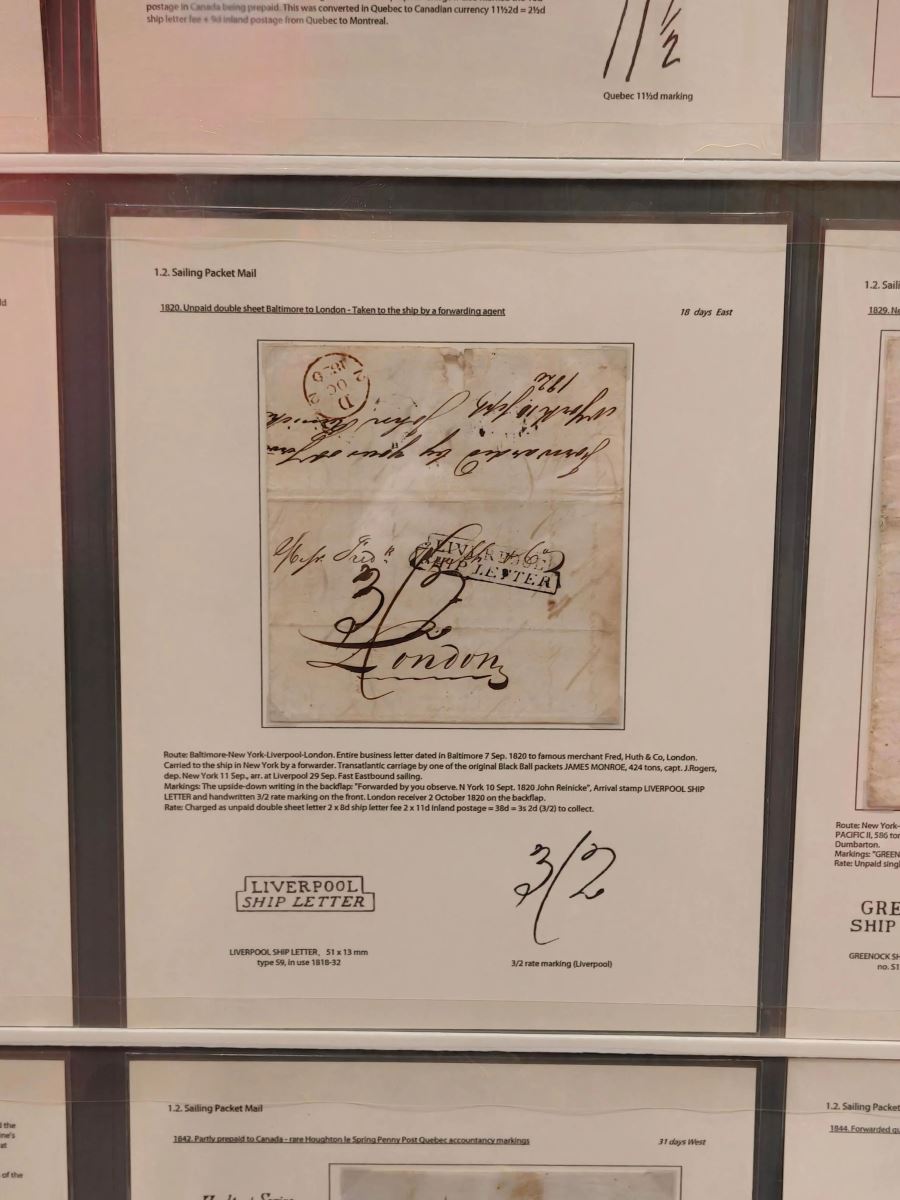 postage in Canada being prepaid. This was converted in Quebec to Canadian currency 11½2d = 2½d
ship letter fee + 9d inland postage from Quebec to Montreal.
11½
Quebec 11½d marking
1.2. Sailing Packet Mail
1820. Unpaid double sheet Baltimore to London - Taken to the ship by a forwarding agent
18 days East
D
OC
2
1820
Forwarded by you
N York 10 Sept. John Reinicke
1820
Messrs Fredk Huth & Co
LIVERPOOL
SHIP LETTER
3/2
London
Route: Baltimore-New York-Liverpool-London. Entire business letter dated in Baltimore 7 Sep. 1820 to famous merchant Fred, Huth & Co, London.
Carried to the ship in New York by a forwarder. Transatlantic carriage by one of the original Black Ball packets JAMES MONROE, 424 tons, capt. J.Rogers,
dep. New York 11 Sep., arr. at Liverpool 29 Sep. Fast Eastbound sailing.
Markings: The upside-down writing in the backflap: "Forwarded by you observe. N York 10 Sept. 1820 John Reinicke", Arrival stamp LIVERPOOL SHIP
LETTER and handwritten 3/2 rate marking on the front. London receiver 2 October 1820 on the backflap.
Rate: Charged as unpaid double sheet letter 2 x 8d ship letter fee 2 x 11d inland postage = 38d = 3s 2d (3/2) to collect.
LIVERPOOL
SHIP LETTER
3/2
LIVERPOOL SHIP LETTER, 51 x 13 mm
type S9, in use 1818-32
3/2 rate marking (Liverpool)
1.2. Saili
1829. Ne
Route: New York-
PACIFIC II, 586 ton
Dumbarton.
Markings: "GREEN
Rate: Unpaid singl
GRE
SHIP
GREENOCK SH
no. S1
the
ine's
at
of the
1.2. Sailing Packet Mail
1842. Partly prepaid to Canada - rare Houghton le Spring Penny Post Quebec accountancy markings
31 days West
1.2. Sailing Packet
1844. Forwarded qu